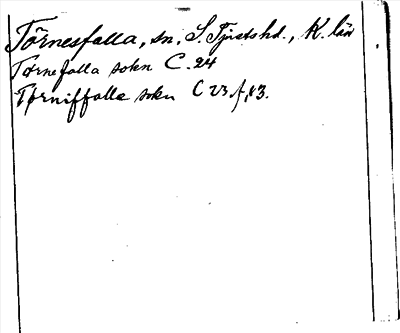 Törnesfalla, sn, S. Tjusts hd., K. län
Tørnefalla sokn C. 24
Tørniffalla sokn C 23 f, 13.